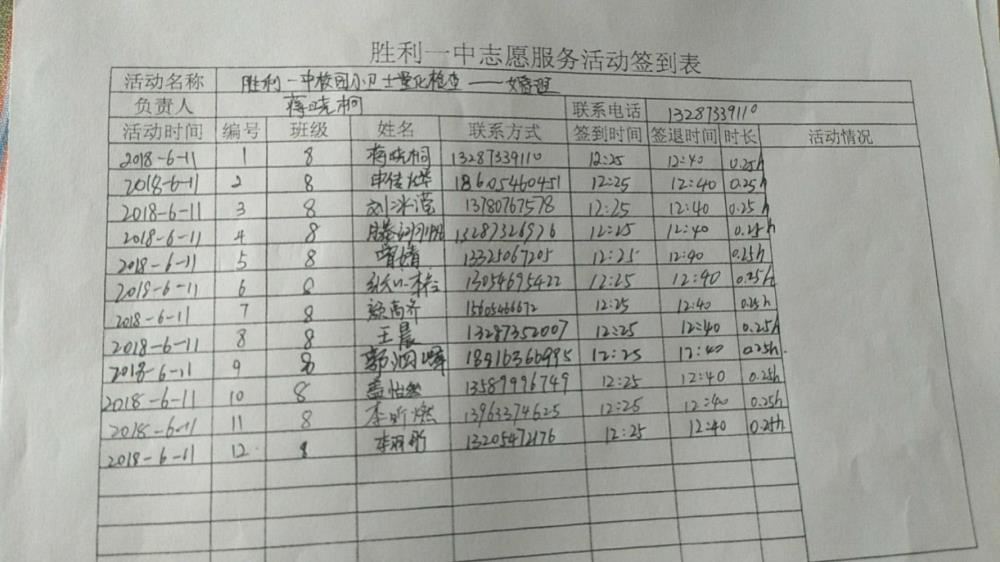 胜利一中志愿服务活动签到表
活动名称 胜利一中校园小卫士量化检查——
负责人 蒋晓桐 联系电话 13287339110
活动时间 编号 班级 姓名 联系方式 签到时间 签退时间 时长 活动情况
2018-6-11 1 8 蒋晓桐 13287339110 12:25 12:40 0.25h
2018-6-11 2 8 申传烨 18605460451 12:25 12:40 0.25h
2018-6-11 3 8 刘冰滢 13780767578 12:25 12:40 0.25h
2018-6-11 4 8 13287326976 12:25 12:40 0.25h
2018-6-11 5 8 13325067205 12:25 12:40 0.25h
2018-6-11 6 8 13054695422 12:25 12:40 0.25h
2018-6-11 7 8 颜高齐 15605466672 12:25 12:40 0.25h
2018-6-11 8 8 王晨 13287352007 12:25 12:40 0.25h
2018-6-11 9 8 12:25 12:40 0.25h
2018-6-11 10 8 盖怡然 13589996749 12:25 12:40 0.25h
2018-6-11 11 8 李昕燃 13963374625 12:25 12:40 0.25h
2018-6-11 12 8 李羽彤 13205472176 12:25 12:40 0.25h